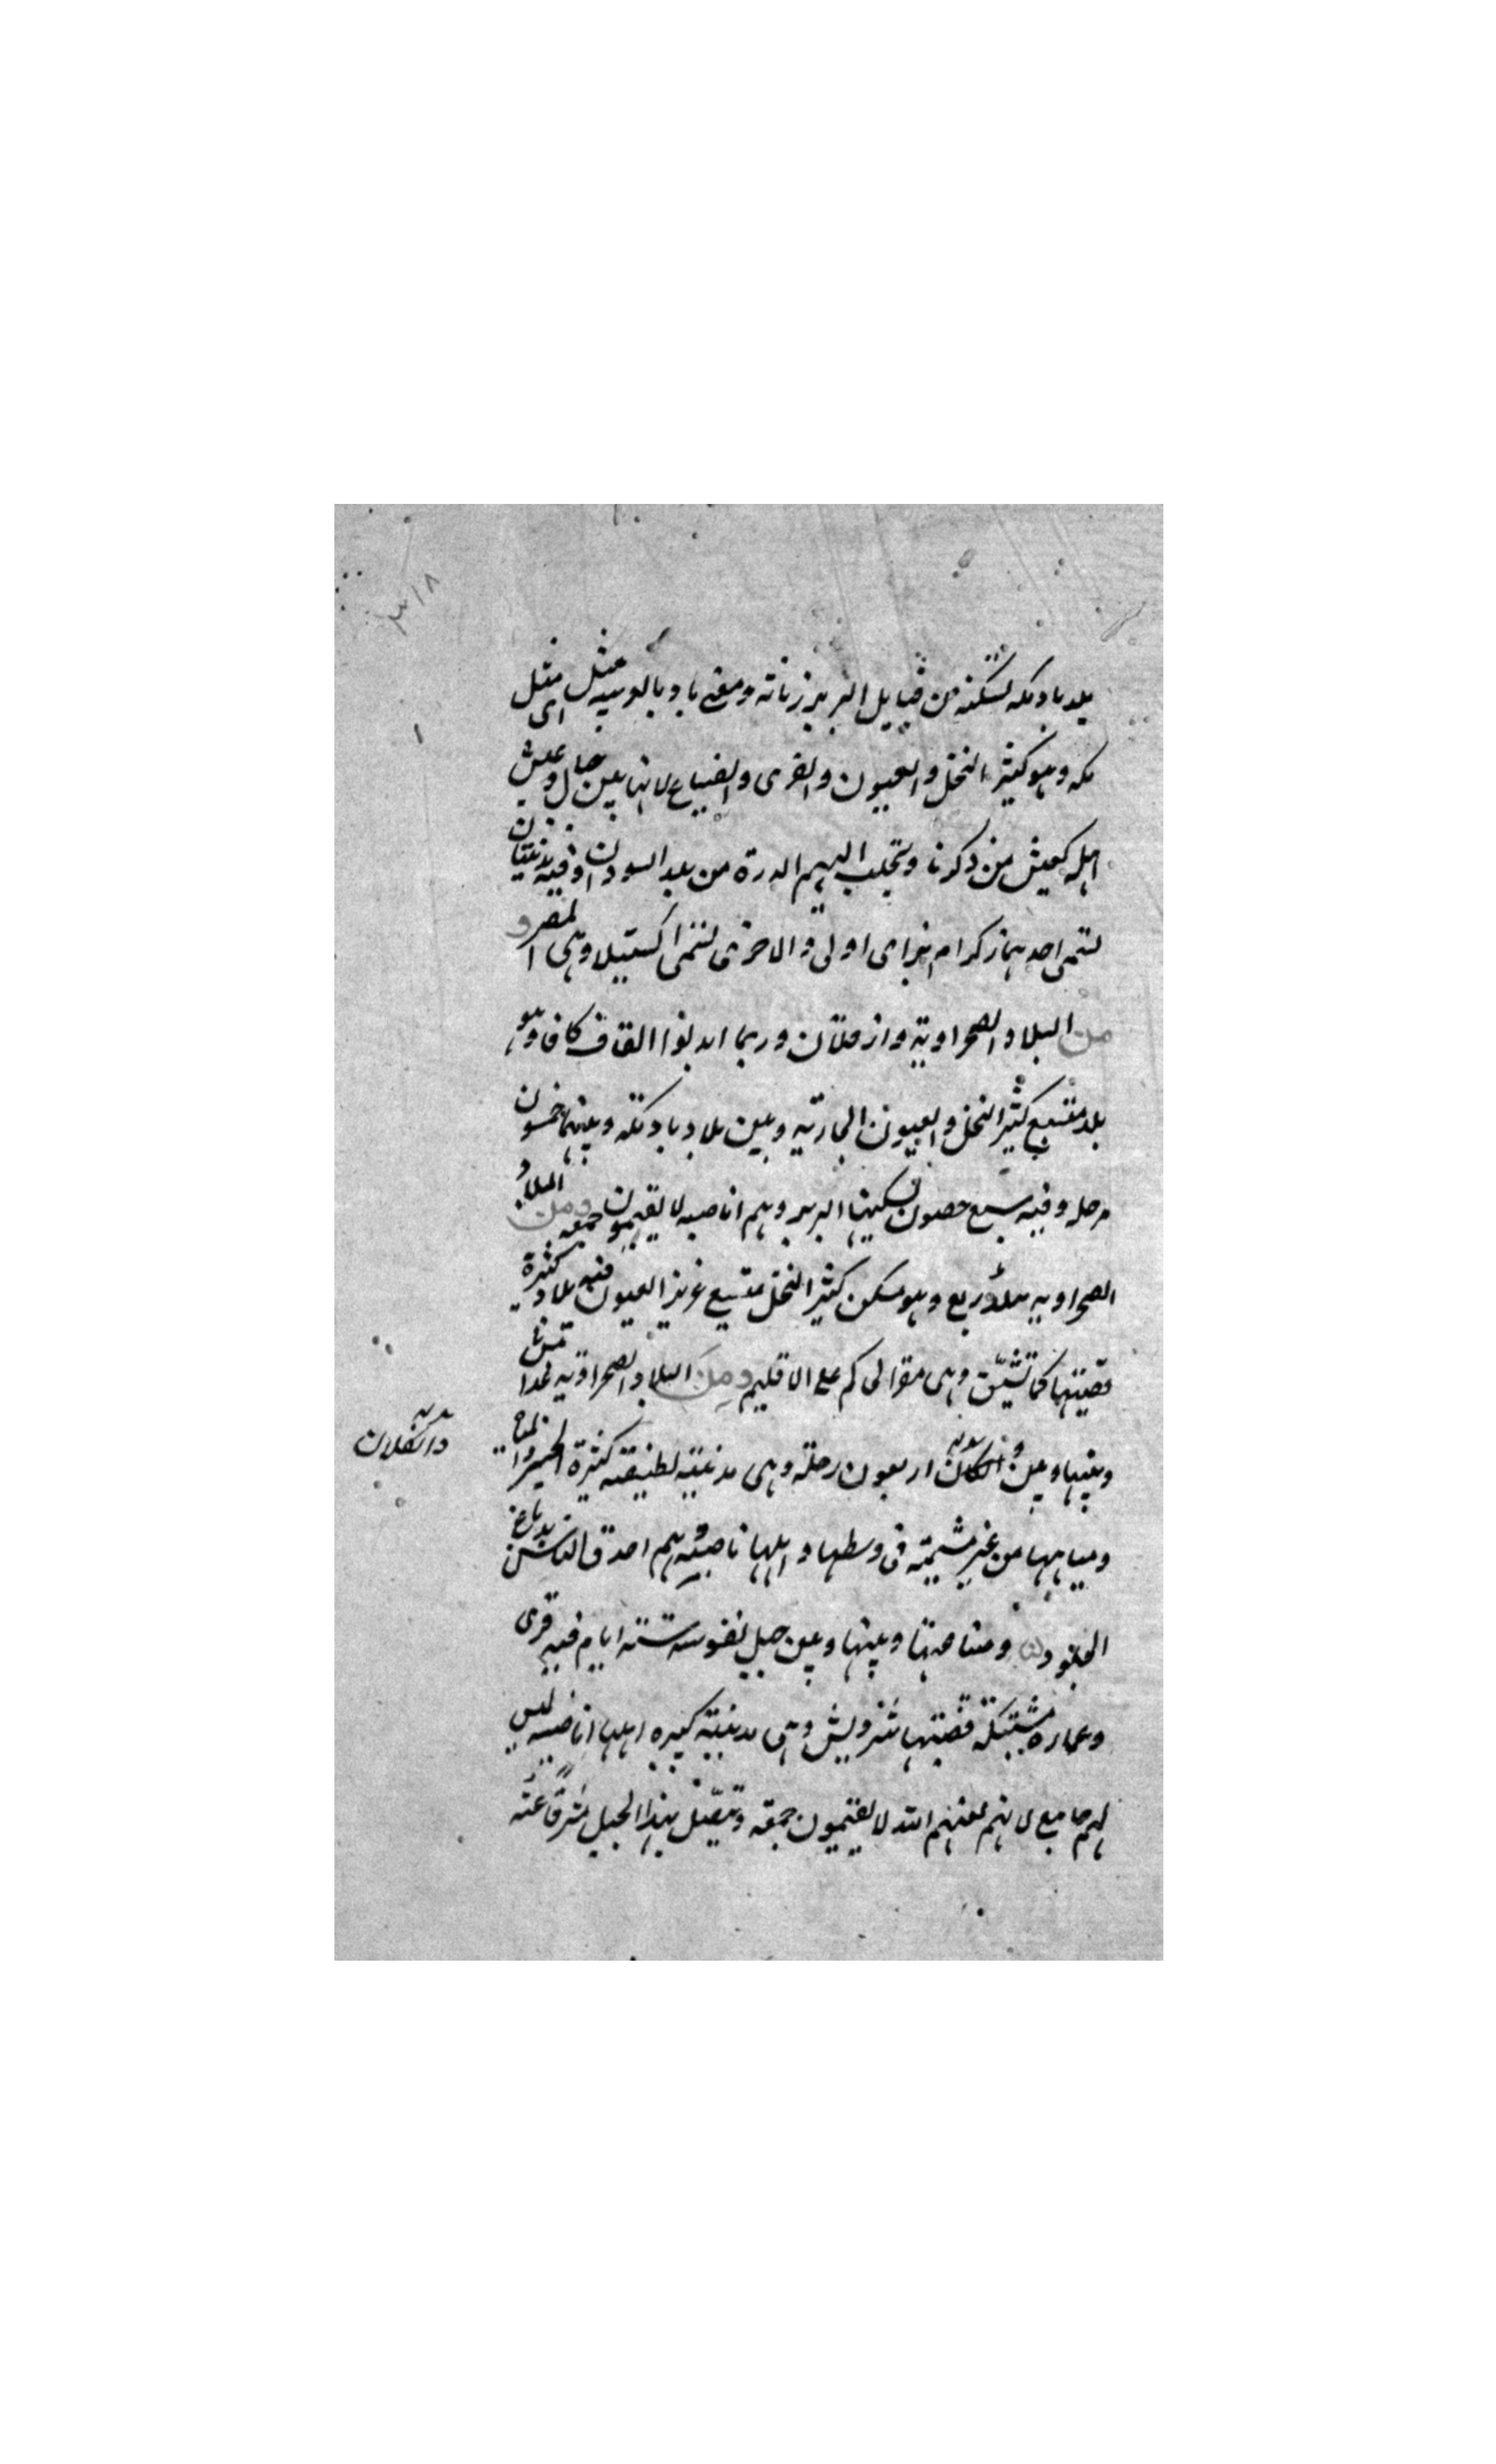 بلد بادمكه تسكنه من قبايل البربر زناته ومعنى باد بالوسيه مثل اى مثل
مكه وهو كثير النخل والعيون والقرى والضياع لانها بين جبال وعيش
اهله كعيش من ذكرنا وتجلب اليهم الدرة من بلد السودان وفيه مدينتان
تسمى احدهما زكرام بزامى اولى والاخرى تسمى اكستيلا وهى المصر و
من البلاد الصحراوية وارقلان وربما ابدلوا القاف كافا وهو
بلد متسع كثير النخل والعيون الجارية وبين بلاد بادمكه وبينها خمسون
مرحله وفيه سبع حصون تسكنها البربر وهم اناصبه لا يقيمون جمعه ومن البلاد
الصحراويه بلد ربع وهو مسكن كثير النخل متسع غزيز العيون فيه بلاد كثيرة
قصبتها كماتشيت وهى مقر الحاكم على الاقليم ومن البلاد الصحراويه غدامس
وبينها وبين واركلان اربعون رحلة وهى مدينة لطيفة كثيرة الخير
ومياهها من عين فى وسطها واهلها ناصبيه وهم احدق الناس بدباغ
الجلود ومنا وبينها وبين جبل نفوسه ستة ايام فيه قرى
وعماره مشتبكة قصبتها شزويش وهى مدينة كبيره اهلها اناصبه ليس
لهم جامع لانهم لعنهم الله لا يقيمون جمعه ويتصل بهذا الجبل شرقا عنه
مدينة
واركلان
٣١٨